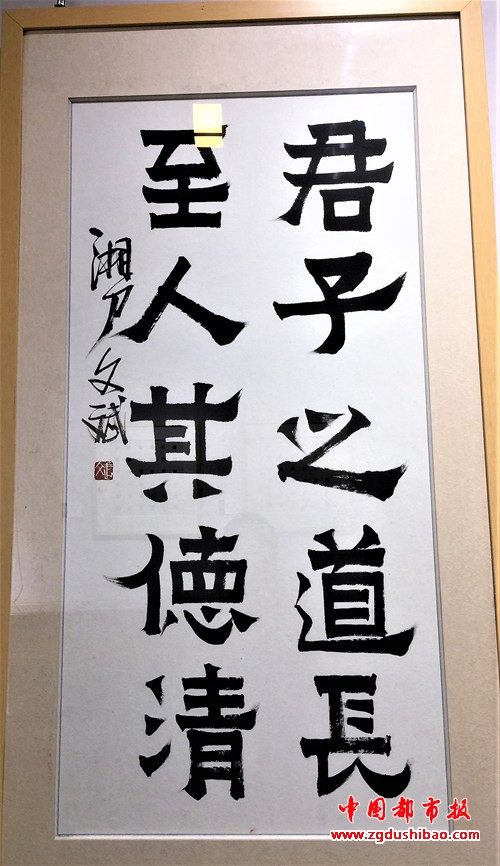 君子之道長
至人其德清
湘尸文斌
中国都市报
www.zgdushibao.com